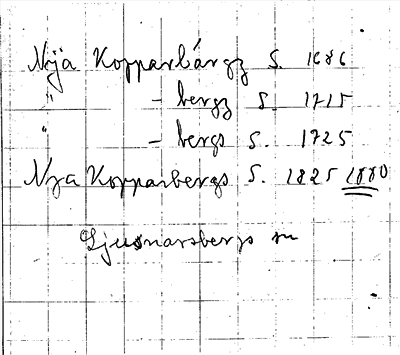 Nyä Kopparbärgz S. 1686
" - bergz S. 1715
" - bergs S. 1725
Nya Kopparbergs S. 1825 1880
Ljusnarsbergs sn